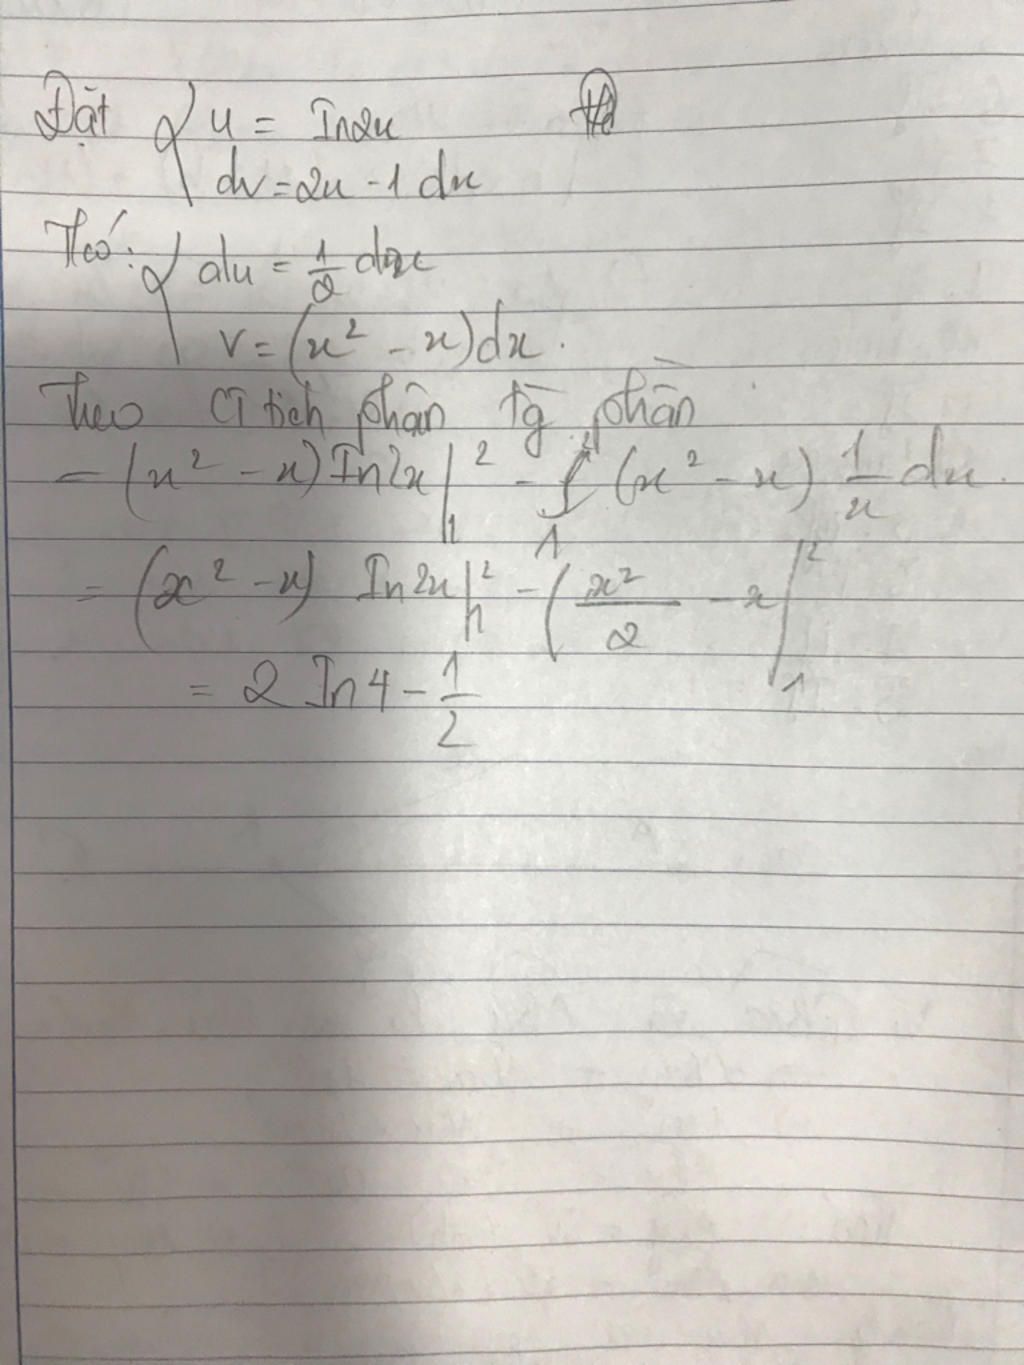 Đặt { u = ln2x
dv = 2x - 1 dx
Ta có: { du = 1/2 dx
v = (x² - x)dx.
Theo CT tích phân từng phần
= (x² - x) ln2x |₁² - ∫₁² (x² - x) 1/x dx.
= (x² - x) ln2x |₁² - (x²/2 - x |₁²
= 2 ln4 - 1/2